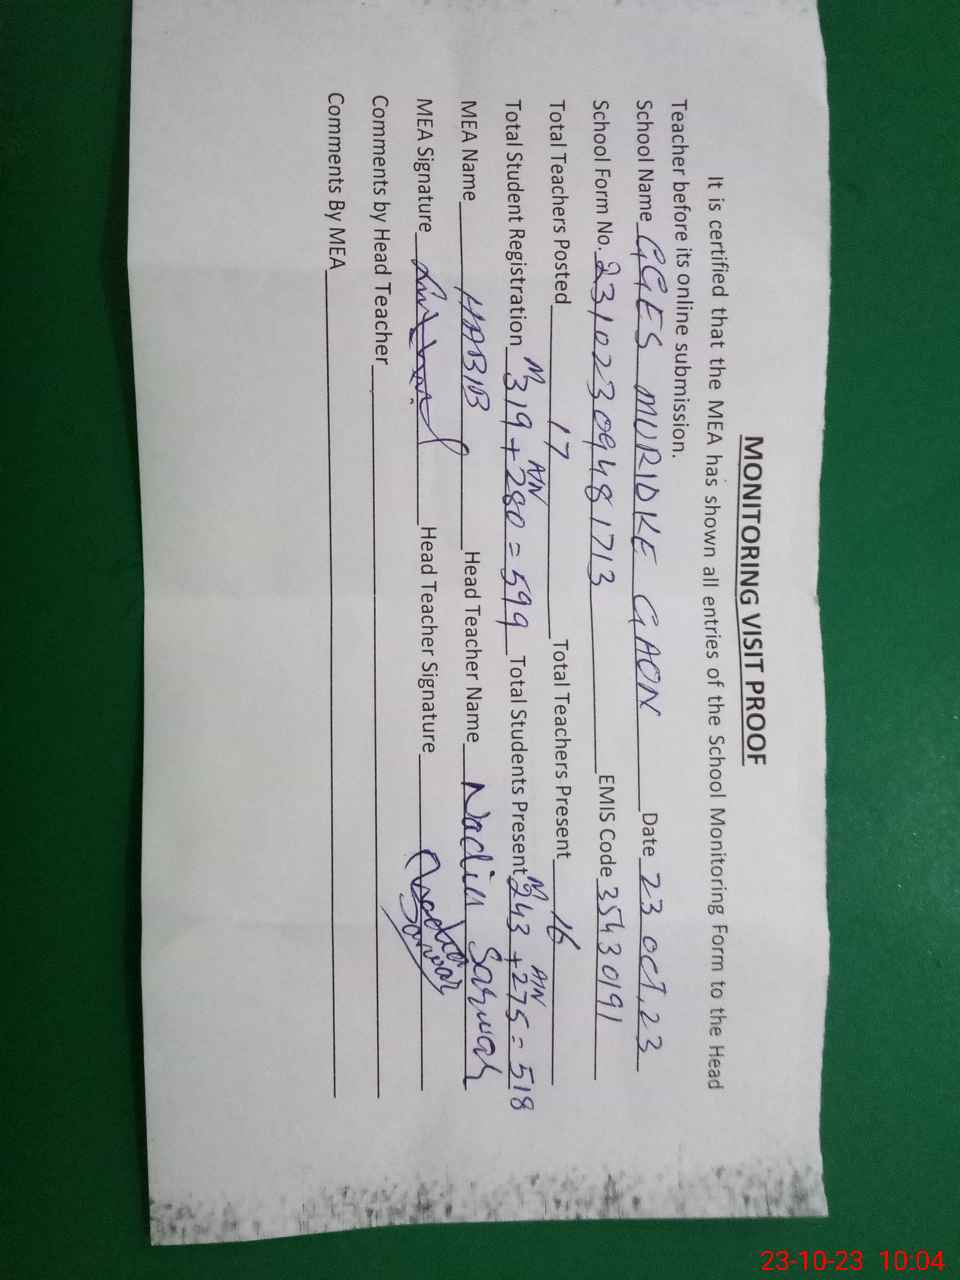 MONITORING VISIT PROOF
It is certified that the MEA has shown all entries of the School Monitoring Form to the Head
Teacher before its online submission.
School Name GGES MURIDKE GAON Date 23 oct, 23
School Form No. 23102309481713 EMIS Code 35430191
Total Teachers Posted 17 Total Teachers Present 16
Total Student Registration M 319 + A/N 280 = 599 Total Students Present M 243 + A/N 275 = 518
MEA Name HABIB Head Teacher Name Nadia Sarwar
MEA Signature Head Teacher Signature Nadia Sarwar
Comments by Head Teacher
Comments By MEA
23-10-23 10:04